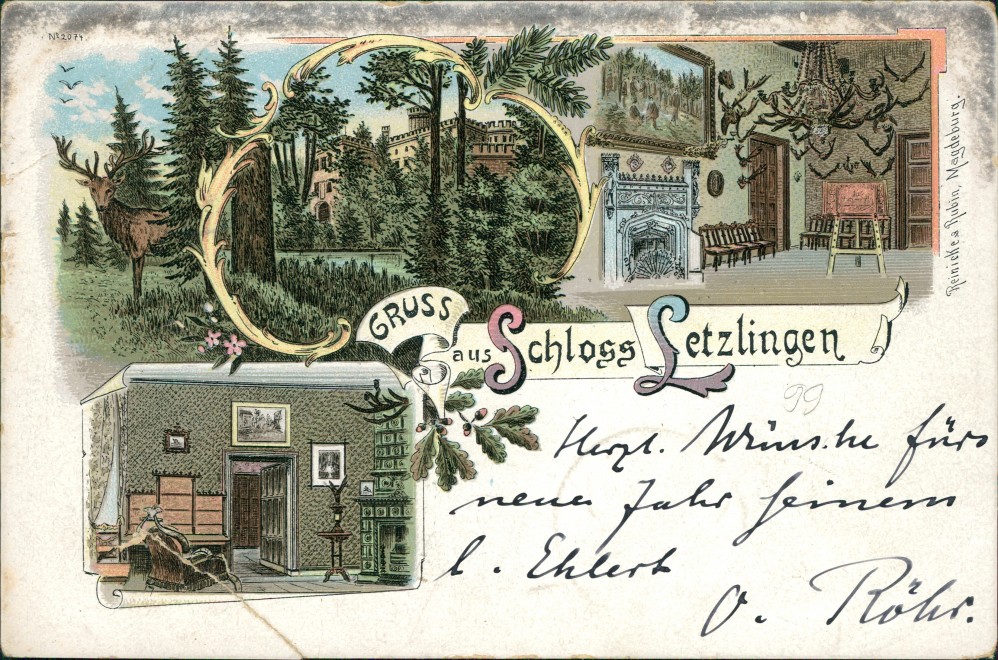 No 2074.
GRUSS
aus Schloss Letzlingen
Reinicke & Rubin, Magdeburg.
99
Herzl. Wünsche fürs
neue Jahr seinem
l. Ehlert
O. Röhr.